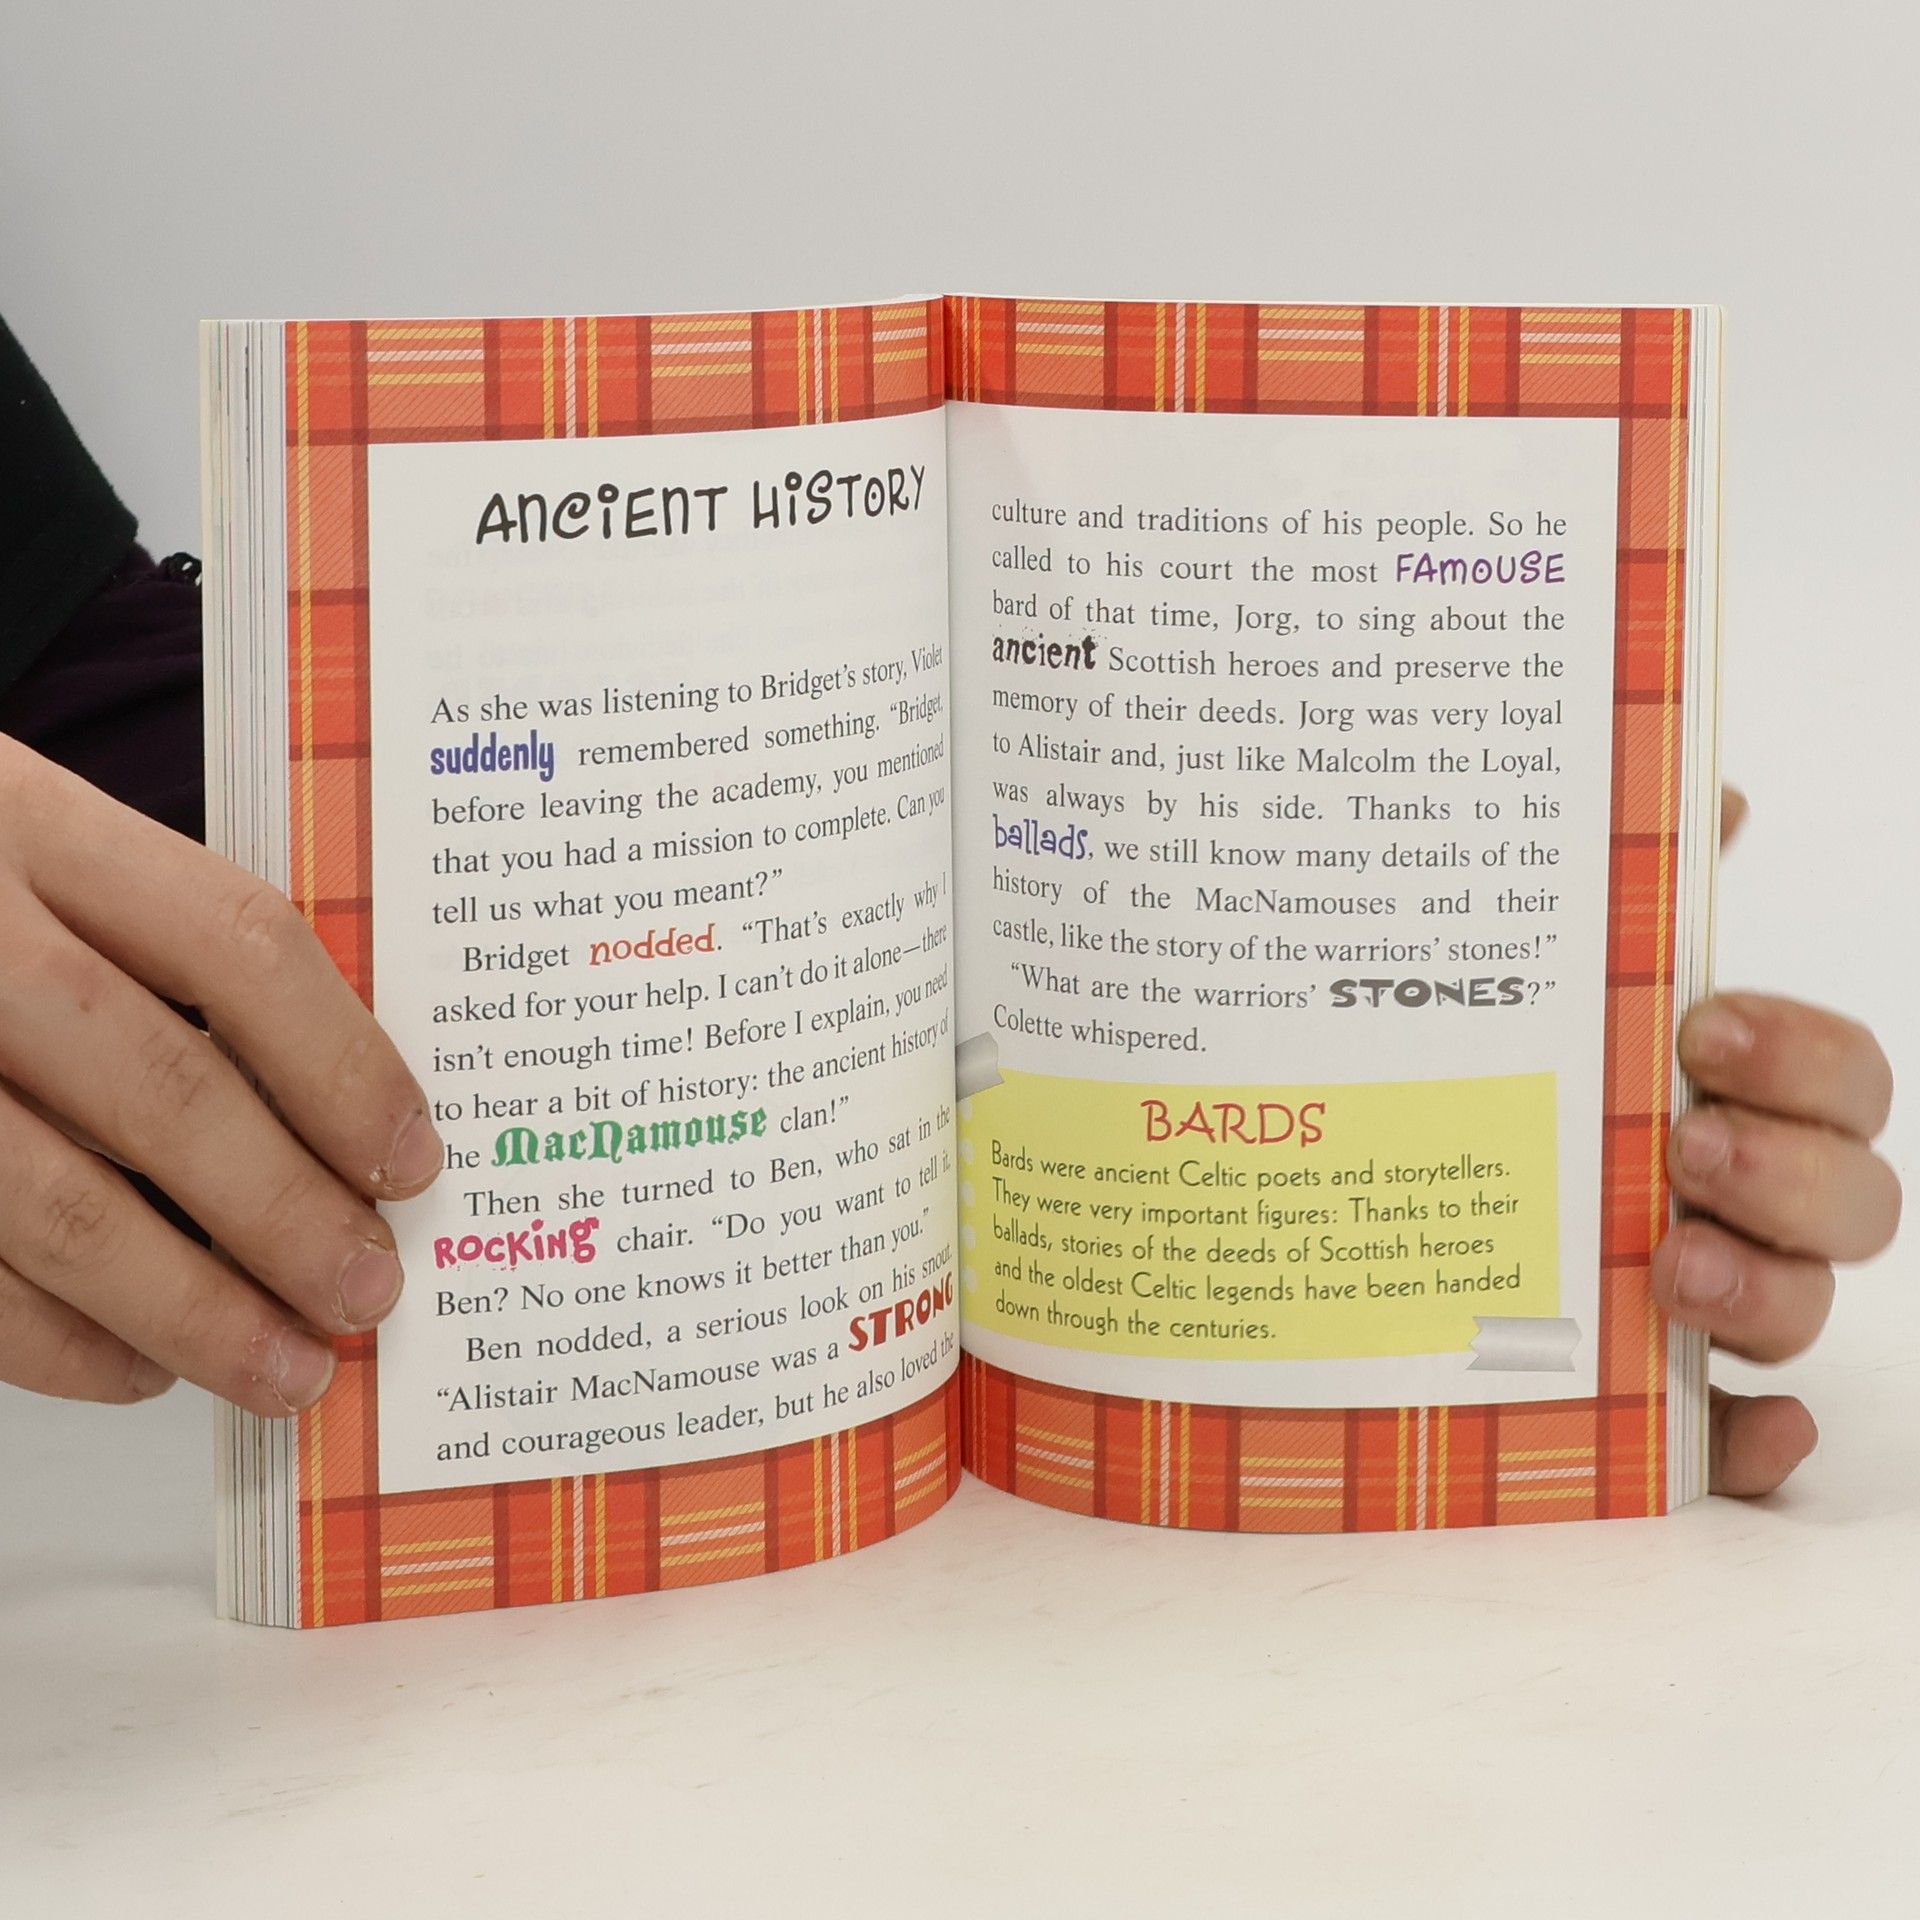 ANCIENT HISTORY
As she was listening to Bridget's story, Violet
suddenly remembered something. “Bridget,
before leaving the academy, you mentioned
that you had a mission to complete. Can you
tell us what you meant?”
Bridget nodded. “That's exactly why I
asked for your help. I can't do it alone—there
isn't enough time! Before I explain, you need
to hear a bit of history: the ancient history of
he MacNamouse clan!”
Then she turned to Ben, who sat in the
ROCKING chair. “Do you want to tell it,
Ben? No one knows it better than you.”
Ben nodded, a serious look on his snout.
“Alistair MacNamouse was a STRONG
and courageous leader, but he also loved the
culture and traditions of his people. So he
called to his court the most FAMOUSE
bard of that time, Jorg, to sing about the
ancient Scottish heroes and preserve the
memory of their deeds. Jorg was very loyal
to Alistair and, just like Malcolm the Loyal,
was always by his side. Thanks to his
ballads, we still know many details of the
history of the MacNamouses and their
castle, like the story of the warriors' stones!”
“What are the warriors' STONES?”
Colette whispered.
BARDS
Bards were ancient Celtic poets and storytellers.
They were very important figures: Thanks to their
ballads, stories of the deeds of Scottish heroes
and the oldest Celtic legends have been handed
down through the centuries.